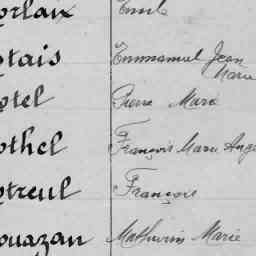 orlaix Emile
tais Emmanuel Jean
Marie
otel Pierre Marie
othel François Marie Ange
treul François
ouazan Mathurin Marie